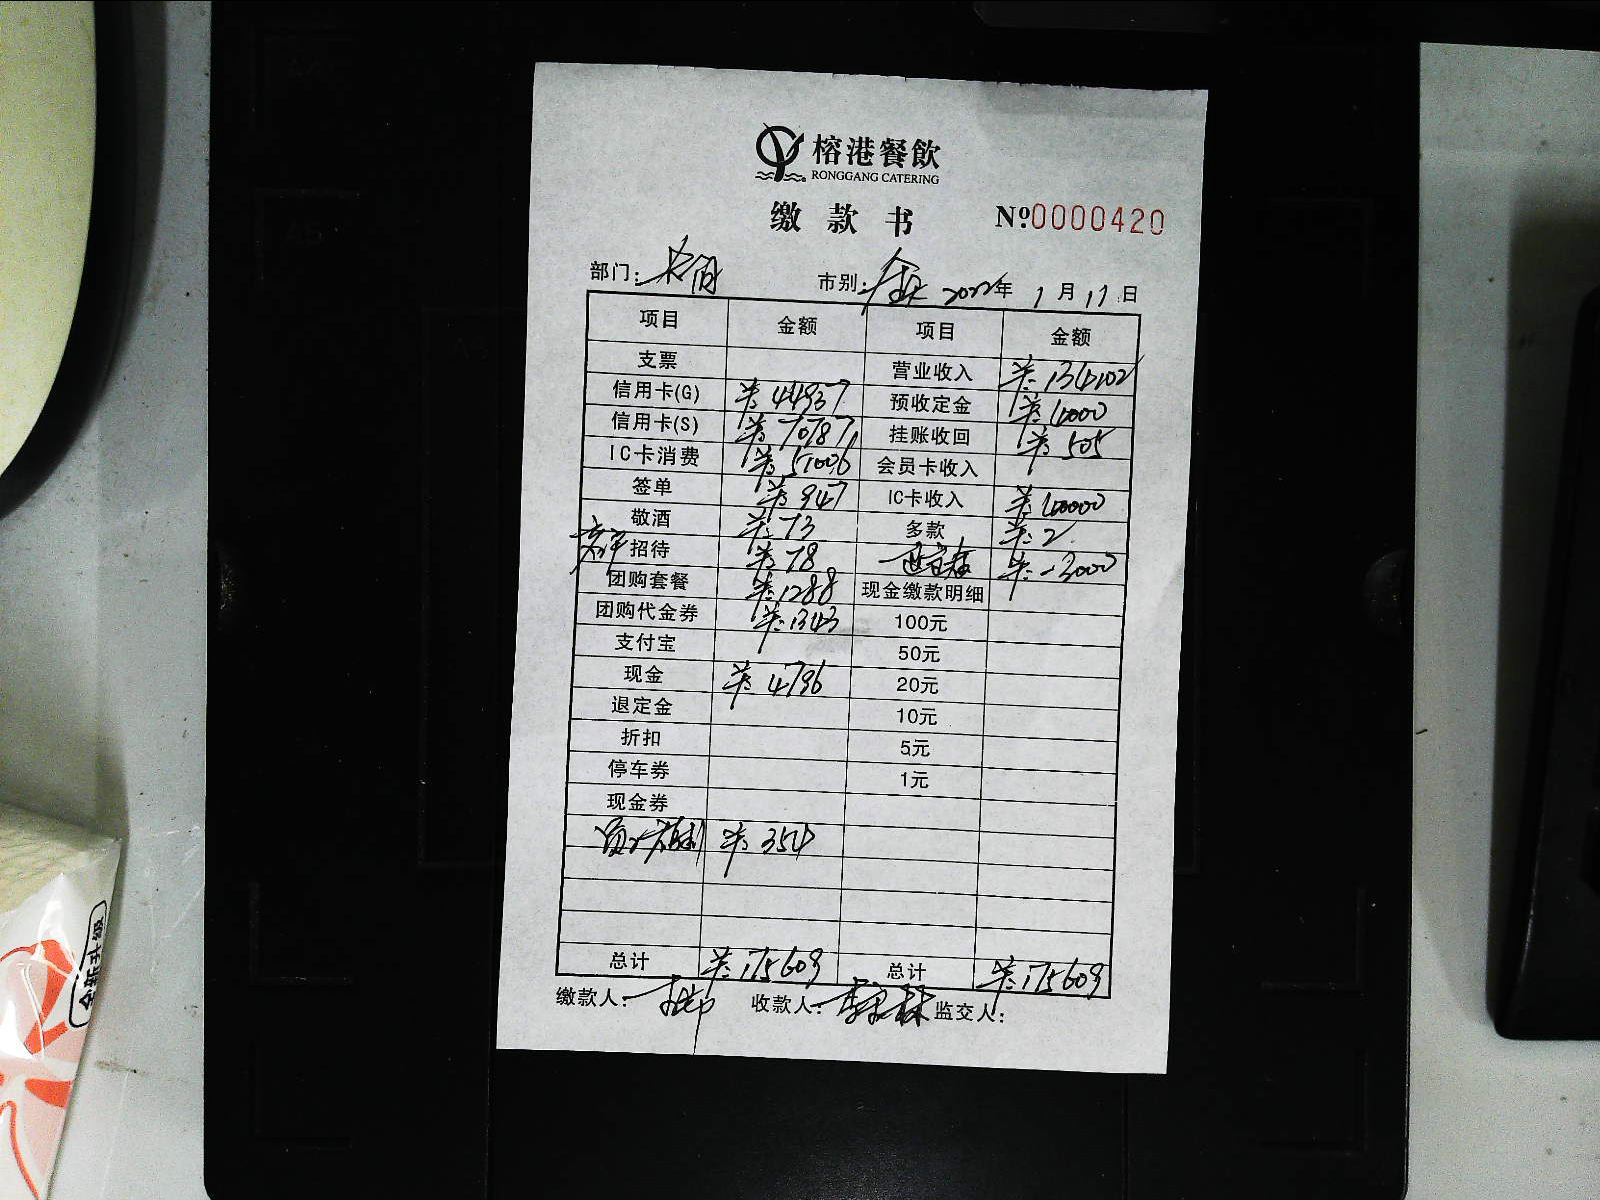 榕港餐飲
RONGGANG CATERING
缴款书 №0000420
部门: 市别: 全天 2022年 1月 17日
项目 金额 项目 金额
支票 营业收入 ¥:134102
信用卡(G) ¥:44937 预收定金 ¥:4000
信用卡(S) ¥:70787 挂账收回 ¥:505
IC卡消费 ¥:51006 会员卡收入
签单 ¥:947 IC卡收入 ¥:40000
敬酒 ¥:73 多款 ¥:2
招待 ¥:78 ¥:-3000
团购套餐 ¥:1288 现金缴款明细
团购代金券 ¥:1343 100元
支付宝 50元
现金 ¥:4796 20元
退定金 10元
折扣 5元
停车券 1元
现金券
员工福利 ¥:354
总计 ¥:175609 总计 ¥:175609
缴款人: 收款人: 监交人:
全新升级